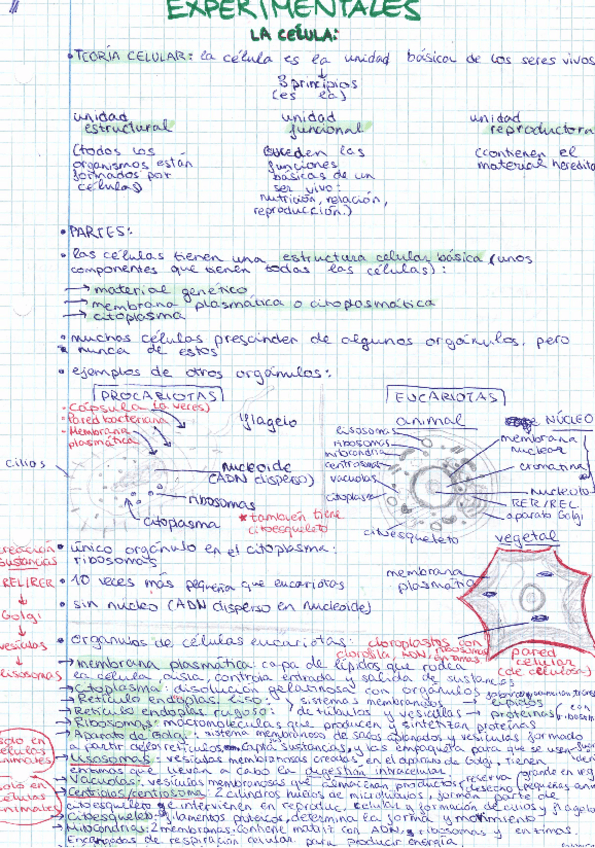 EXPERIMENTALES
LA CELULA:
• TEORÍA CELULAR: la célula es la unidad básica de los seres vivos
3 principios
(es la)
unidad estructural
(todos los organismos están formados por células)
unidad funcional
(suceden las funciones básicas de un ser vivo: nutrición, relación, reproducción.)
unidad reproductora
(contienen el material heredita
• PARTES:
• las células tienen una estructura celular básica (unos
componentes que tienen todas las células):
→ material genético
→ membrana plasmática o citoplasmática
→ citoplasma
• muchas células prescinden de algunos orgánulos, pero
nunca de estos
• ejemplos de otros orgánulos:
PROCARIOTAS
- Cápsula (a veces)
- Pared bacteriana
- Membrana plasmática
flagelo
cilios
nucleoide
(ADN disperso)
ribosomas
citoplasma
* también tiene citoesqueleto
EUCARIOTAS
animal
lisosomas
ribosomas
mitocondria
centrosoma
vacuolas
citoplasma
citoesqueleto
NÚCLEO
membrana nuclear
cromatina
nucleolo
RER/REL
aparato Golgi
vegetal
membrana plasmática
pared celular
(de celulosa)
cloroplastos con
clorofila, ADN, ribosomas
enzimas
• único orgánulo en el citoplasma:
ribosomas
• 10 veces más pequeña que eucariotas
• sin núcleo (ADN disperso en nucleoide)
sustancias
REL/RER
↓
Golgi
↓
vesículas
↓
lisosomas
• orgánulos de células eucariotas:
→ membrana plasmática: capa de lípidos que rodea
la célula, aísla, controla entrada y salida de sustancias
→ Citoplasma: disolución gelatinosa con orgánulos
→ Retículo endoplas. liso } sistemas membranosos → lípidos
→ Retículo endoplas. rugoso: } de túbulos y vesículas → proteínas con
→ Ribosomas: macromoléculas que producen y sintetizan proteínas
→ Aparato de Golgi: sistema membranoso de sacos aplanados y vesículas formado
a partir de los retículos. Capta sustancias, y las empaqueta para que se usen
→ Lisosomas: vesículas membranosas creadas en el aparato de Golgi, tienen
enzimas que llevan a cabo la digestión intracelular.
→ Vacuolas: vesículas membranosas que almacenan productos
reserva (grande en veg
desecho (pequeñas anim
→ Centriolos/centrosoma: 2 cilindros huecos de microtúbulos, forma parte de
citoesqueleto e intervienen en reproduc. celular y formación de cilios y flagelo
→ Citoesqueleto: filamentos proteicos, determina la forma y movimiento
→ Mitocondrias: 2 membranas. Contiene matriz con ADN, ribosomas y enzimas.
Encargadas de respiración celular para producir energía.
solo en células animales
solo en células animales